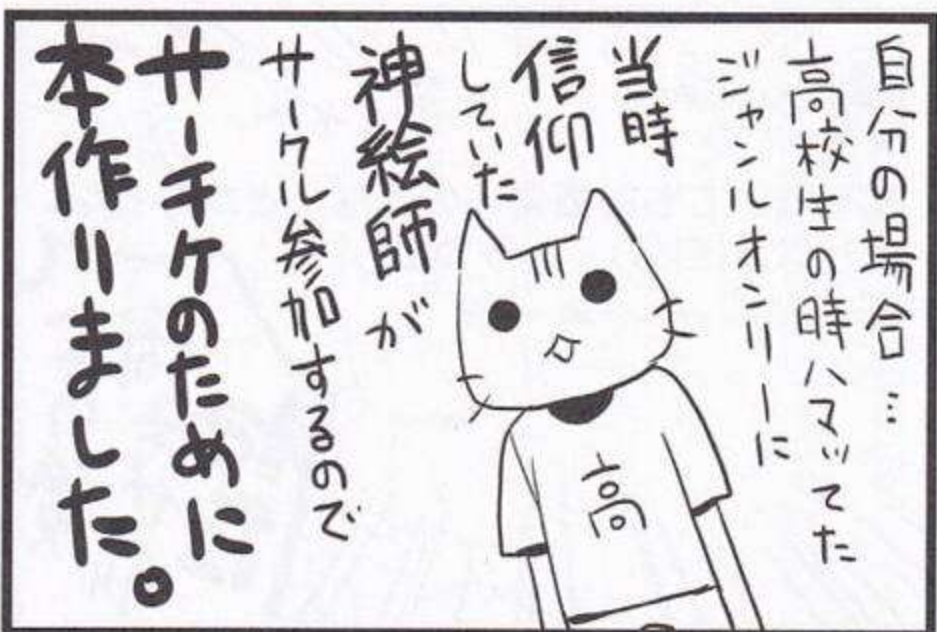 自分の場合…
高校生の時ハマッてた
ジャンルオンリーに
当時
信仰
していた
神絵師が
サークル参加するので
サーチケのために
本作りました。
高